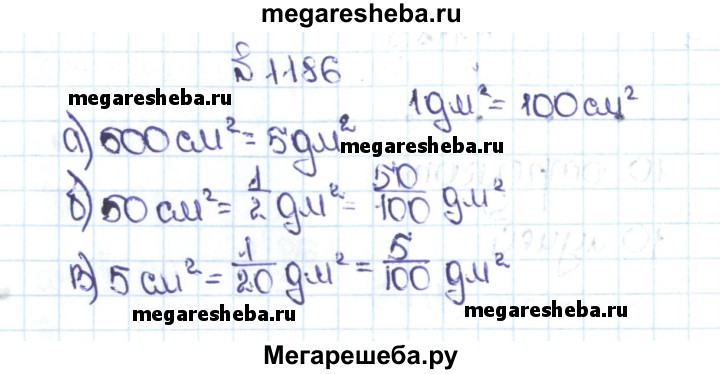 megaresheba.ru
№ 1186
megaresheba.ru
1 дм² = 100 см²
а) 500 см² = 5 дм²
megaresheba.ru
б) 50 см² = 1/2 дм² = 50/100 дм²
в) 5 см² = 1/20 дм² = 5/100 дм²
megaresheba.ru
megaresheba.ru
Мегарешеба.ру